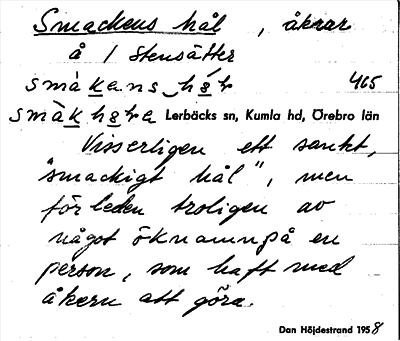 Smackens hål, åkrar
å / Stensätter
smàkans hǝ́r
465
smàkhǝra Lerbäcks sn, Kumla hd, Örebro län
Visserligen ett sankt,
"smackigt hål", men
förleden troligen av
något öknamn på en
person, som haft med
åkern att göra.
Dan Höjdestrand 1958